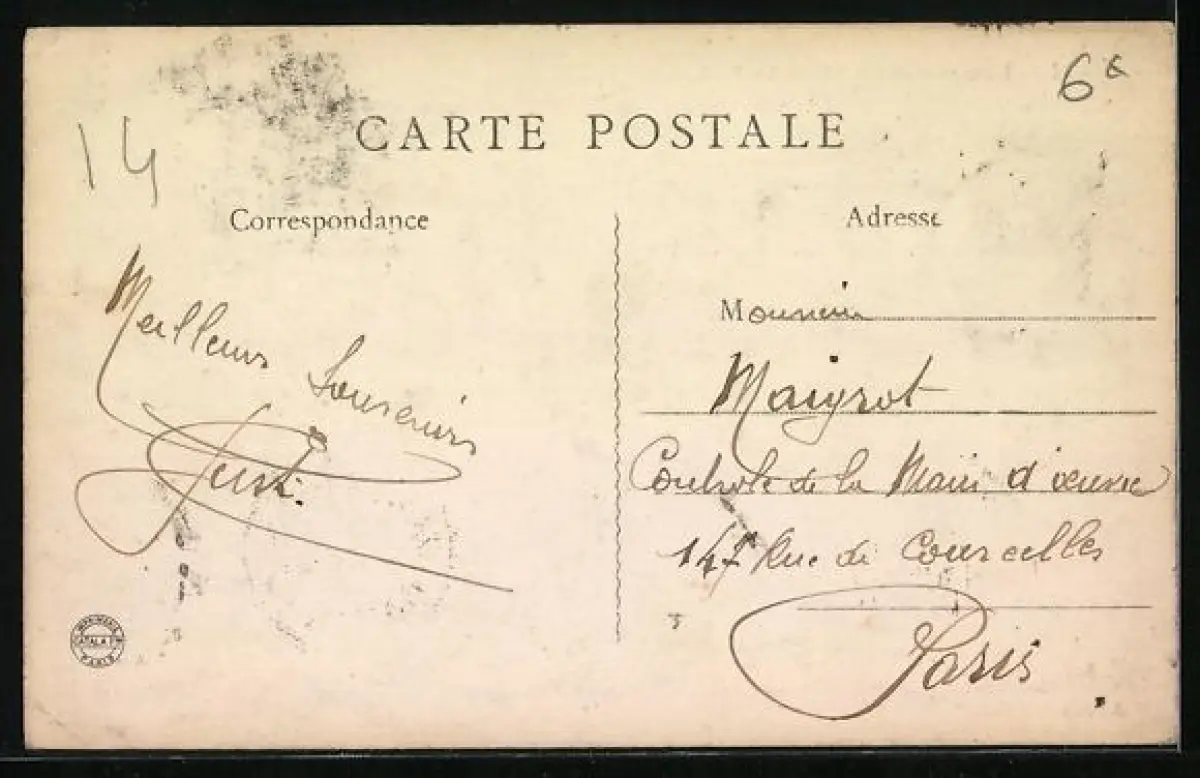 6€
14
CARTE POSTALE
Correspondance
Adresse
Meilleurs Souvenirs
Monsieur
Maigrot
Controle de la Main d'œuvre
147 Rue de Courcelles
Paris
PARIS